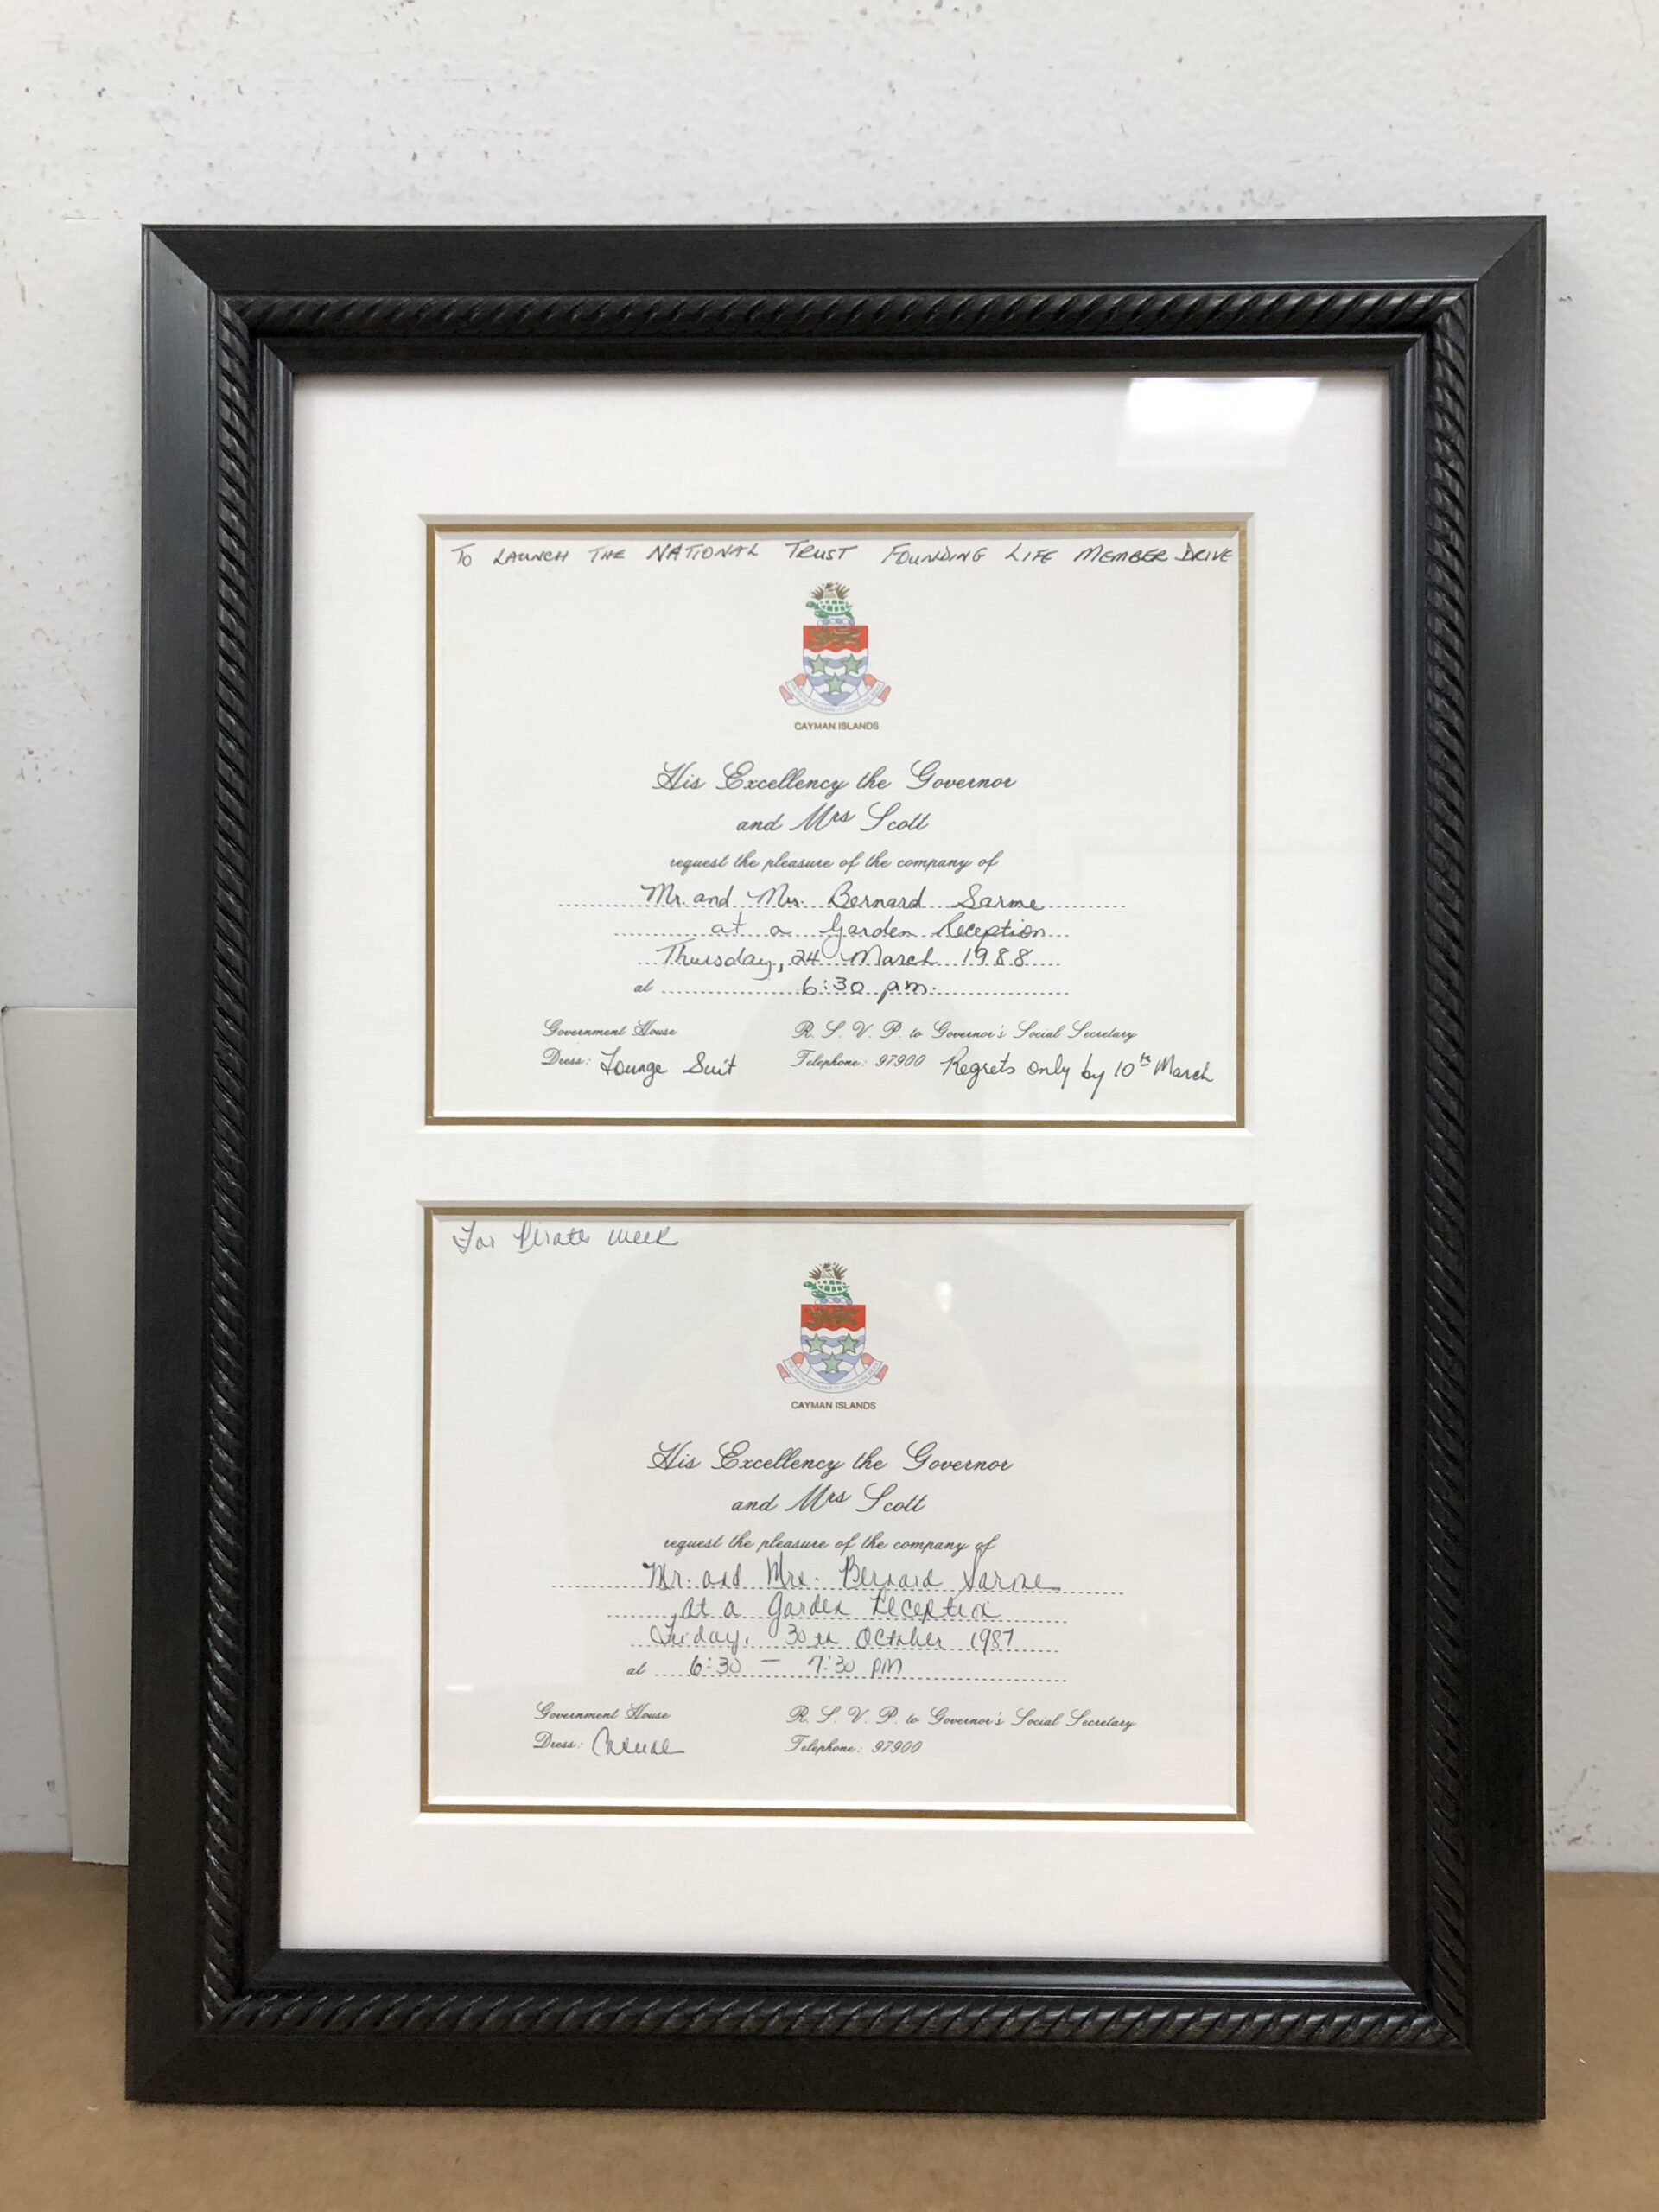 To LAUNCH THE NATIONAL TRUST FOUNDING LIFE MEMBER DRIVE
CAYMAN ISLANDS
His Excellency the Governor
and Mrs Scott
request the pleasure of the company of
Mr. and Mrs. Bernard Sarme
at a Garden Reception
Thursday, 24 March 1988
at 6:30 pm.
Government House R. S. V. P. to Governor's Social Secretary
Dress: Lounge Suit Telephone: 97900 Regrets only by 10th March
For Pirates Week
CAYMAN ISLANDS
His Excellency the Governor
and Mrs Scott
request the pleasure of the company of
Mr. and Mrs. Bernard Sarme
at a Garden Reception
Friday, 30th October 1987
at 6:30 — 7:30 pm
Government House R. S. V. P. to Governor's Social Secretary
Dress: Casual Telephone: 97900